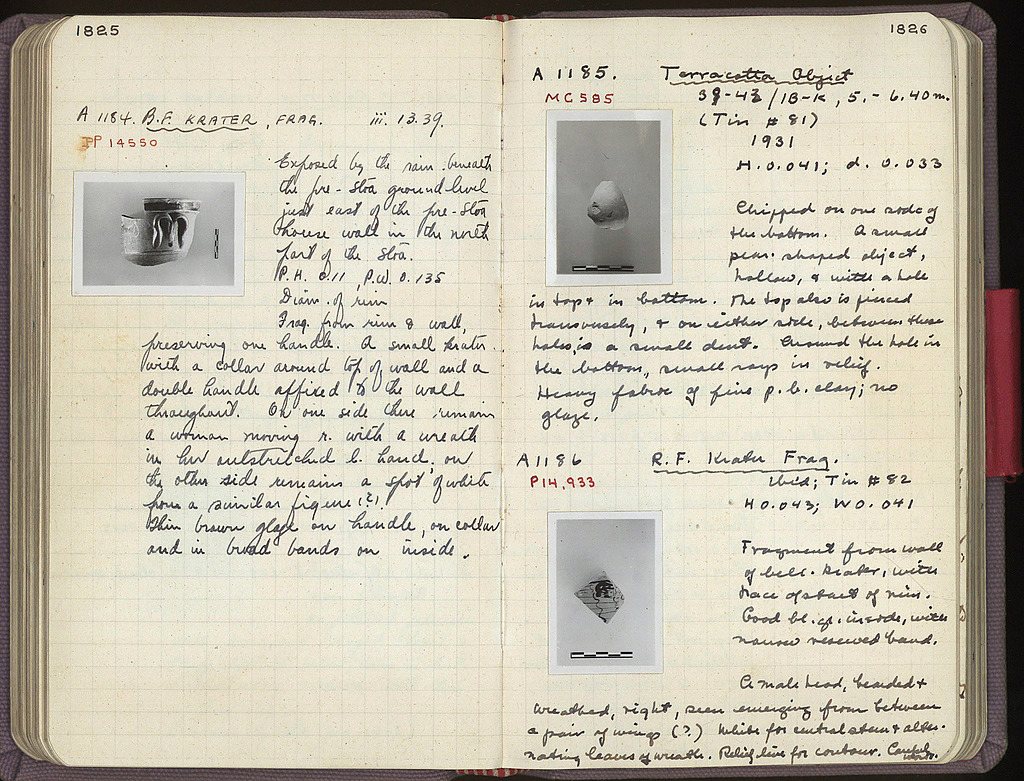 1825
A 1184. B.F. KRATER, FRAG. iii. 13.39.
P 14550
Exposed by the rain beneath
the pre-Stoa ground level
just east of the pre-Stoa
house wall in the north
part of the Stoa.
P.H. 0.11, P.W. 0.135
Diam. of rim
Frag. from rim & wall,
preserving one handle. A small krater
with a collar around top of wall and a
double handle affixed to the wall
throughout. On one side there remains
a woman moving r. with a wreath
in her outstretched l. hand; on
the other side remains a spot of white
from a similar figure (?).
Thin brown glaze on handle, on collar
and in broad bands on inside.
1826
A 1185. Terracotta Object
MC 585
/ 1B-K, 5.- 6.40 m.
(Tin # 81)
1931
H. 0.041; d. 0.033
Chipped on one side of
the bottom. A small
pear-shaped object,
hollow, & with a hole
in top & in bottom. The top also is pierced
transversely, & on either side, between these
holes, is a small dent. Around the hole in
the bottom, small rays in relief.
Heavy fabric of fine p.b. clay; no
glaze.
A 1186 R.F. Krater Frag.
P14,933
Ibid; Tin # 82
H 0.043; W 0.041
Fragment from wall
of bell-krater, with
trace of start of rim.
Good bl. gl. inside, with
narrow reserved band.
A male head, bearded &
wreathed, right, seen emerging from between
a pair of wings (?) White for central stem & alter-
nating leaves of wreath. Relief line for contour. Careful
work.